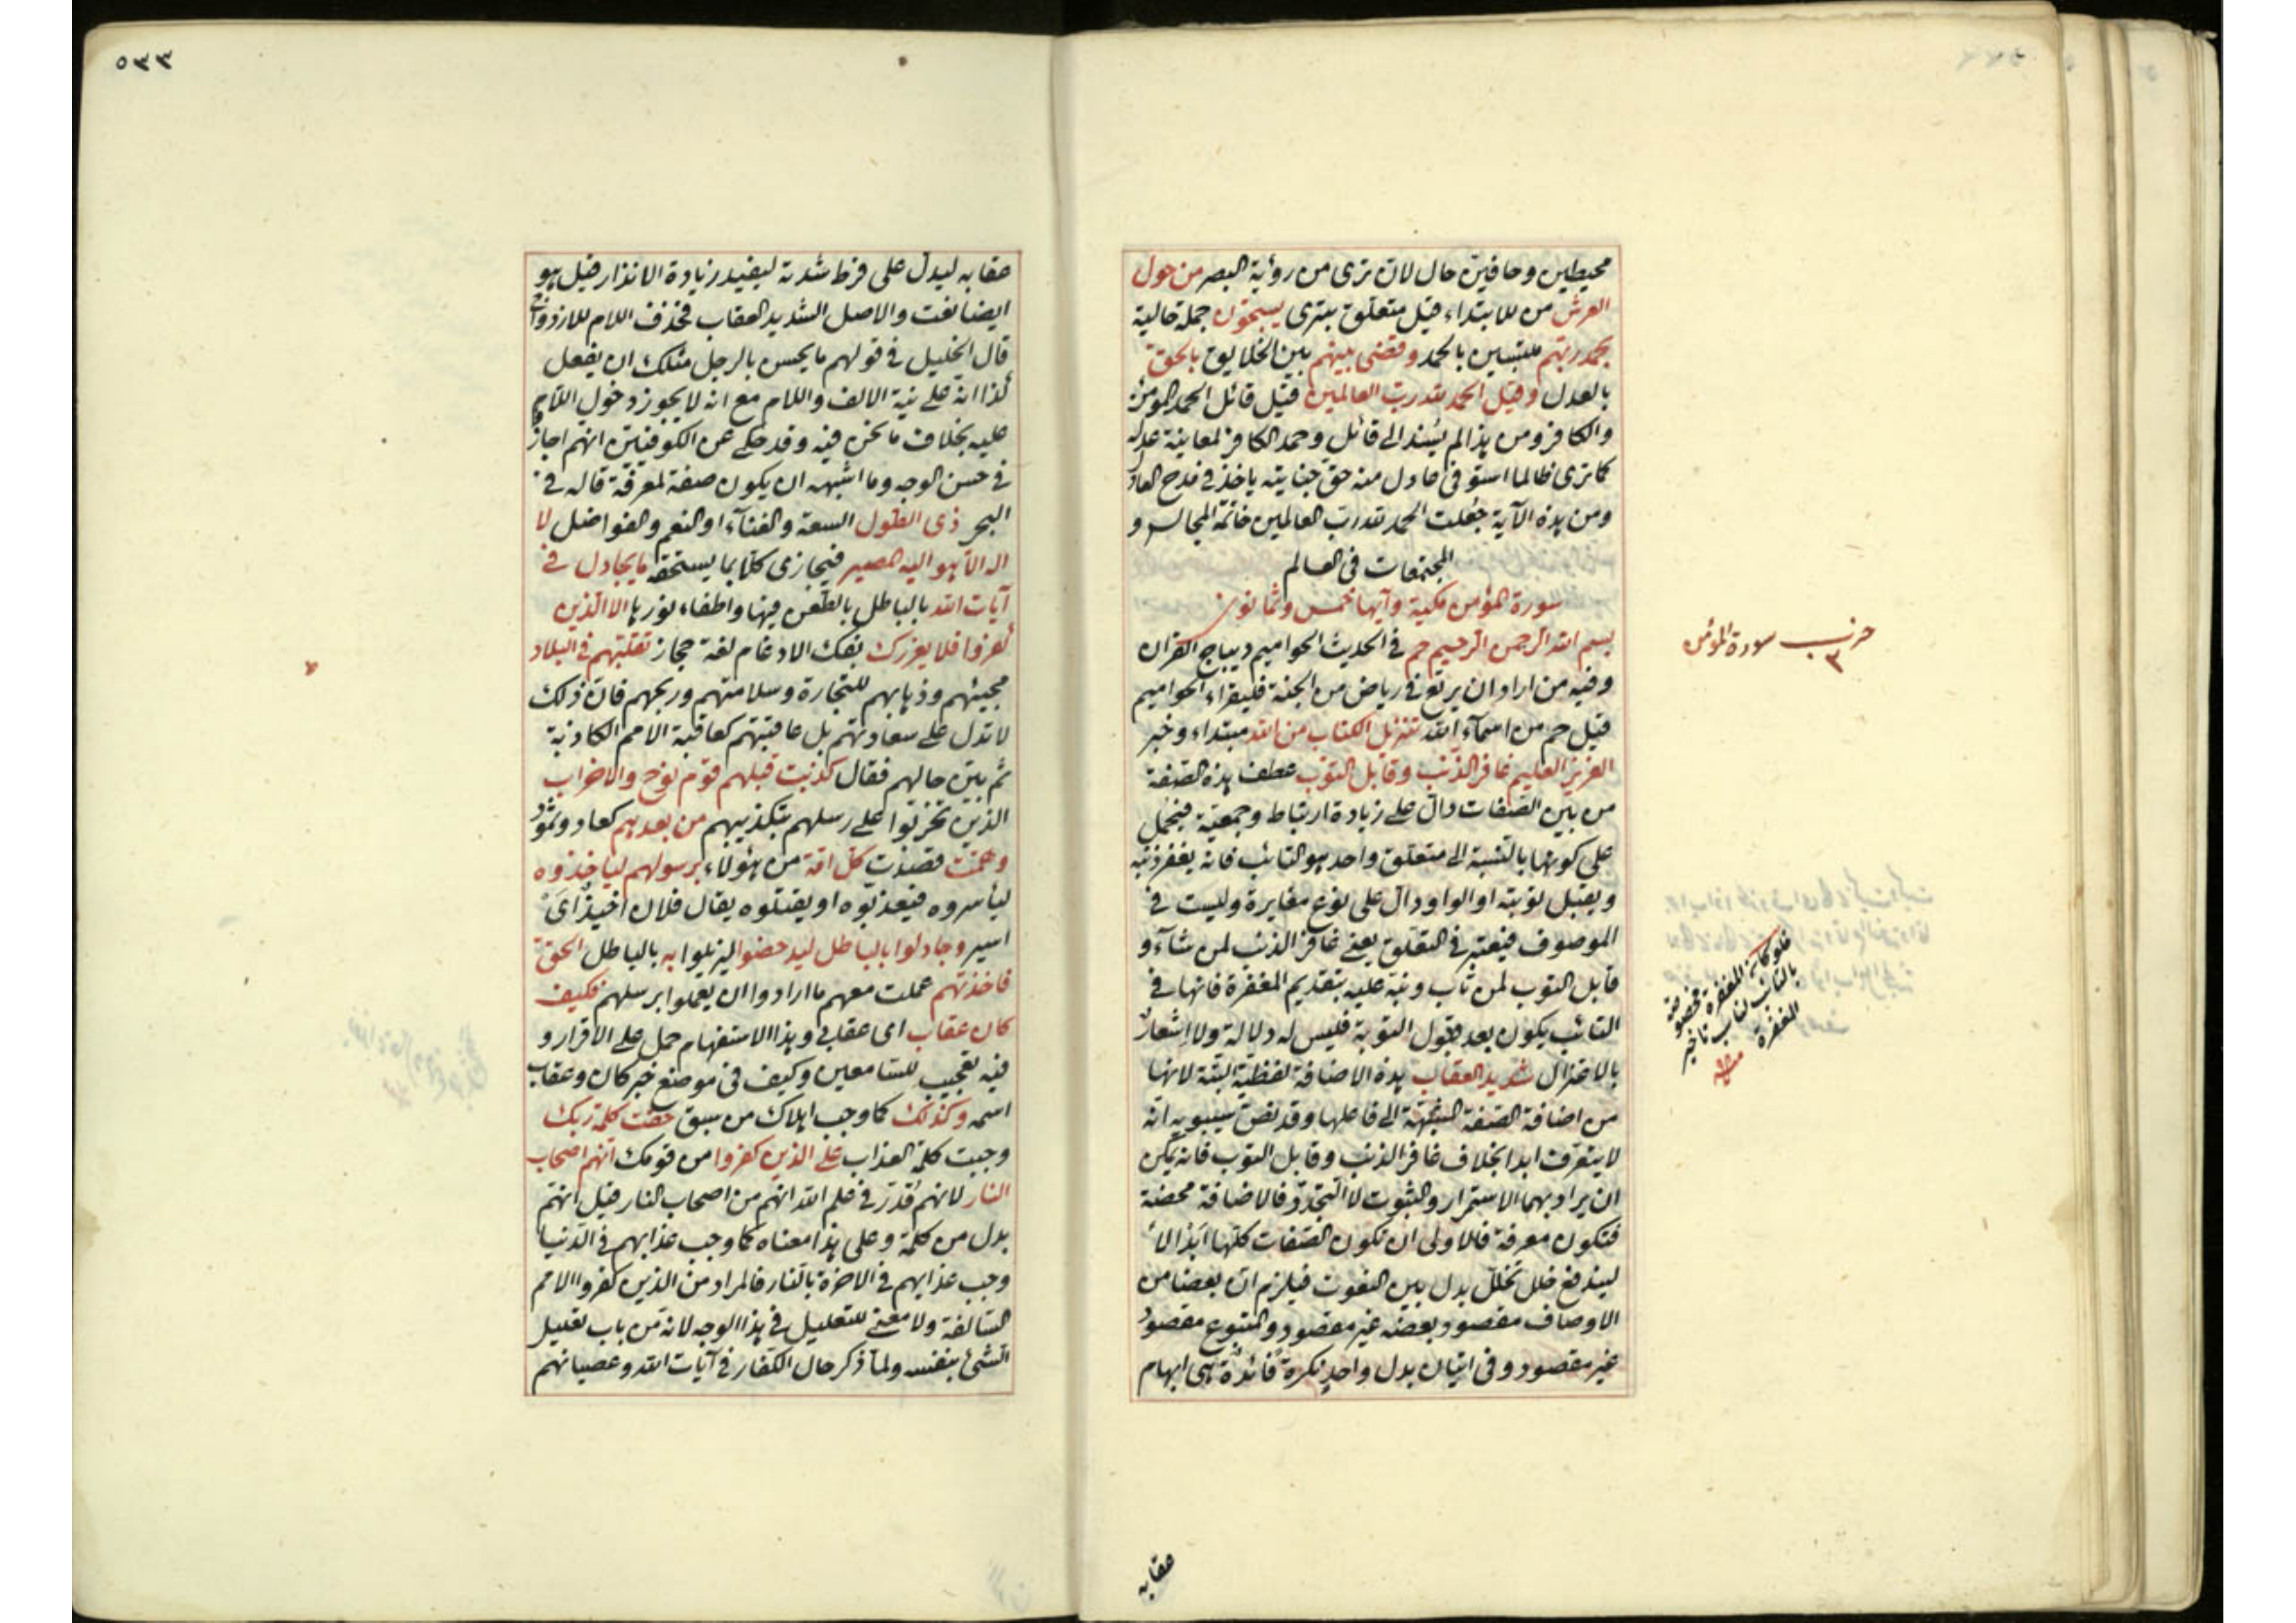 محيطين وحافين حال لان ترى من رؤية البصر من حول
العرش من للابتداء قيل متعلق بترى يسبحون جملة حالية
بحمد ربهم ملتبسين بالحمد وقضى بينهم بين الخلايق بالحق
بالعدل وقيل الحمد لله رب العالمين قيل قائل الحمد المؤمن
والكافر ومن هذا لم يسند الى قائل وحمد الكافر لمعاينة عدله
كما ترى ظالما استوفى عادل منه حق جنايته ياخذ فى مدح العادل
ومن هذه الآية جعلت الحمد لله رب العالمين خاتمة المجالس و
المجتمعات فى العالم
سورة المؤمن مكية وآيها خمس وثمانون
بسم الله الرحمن الرحيم حم فى الحديث الحواميم ديباج القران
وفيه من اراد ان يرتع فى رياض من الجنة فليقراء الحواميم
قيل حم من اسمآء الله تنزيل الكتاب من الله مبتداء وخبر
العزيز العليم غافر الذنب وقابل التوب عطف هذه الصفة
من بين الصفات دال على زيادة ارتباط وجمعية فيحمل
على كونهما بالنسبة الى متعلق واحد هو التائب فانه يغفر ذنبه
ويقبل توبته او الواو دال على نوع مغايرة وليست فى
الموصوف فيعتبر فى التعلق يعنى غافر الذنب لمن شآء و
قابل التوب لمن تاب ونبه عليه بتقديم المغفرة فانها فى
التائب يكون بعد قبول التوبة فليس له دلالة ولا اشعار
بالاعتزال شديد العقاب هذه الاضافة لفظية البتة لانها
من اضافة الصفة المشبهة الى فاعلها وقد نص سيبويه انه
لا يتعرف ابدا بخلاف غافر الذنب وقابل التوب فانه يمكن
ان يراد بهما الاستمرار والثبوت لا التجدد فالاضافة محضة
فتكون معرفة فالاولى ان تكون الصفات كلها ابدالا
ليندفع خلل تخلل بدل بين النعوت فيلزم ان بعضا من
الاوصاف مقصود وبعضه غير مقصود والمتبوع مقصود
غير مقصود وفى اتيان بدل واحد نكرة فائدة هى ابهام
حزب سورة المؤمن
٣
فلو كانت المغفرة مخصوصة
بالتائب لناسب تاخير
المغفرة
منه
عقابه
٥٣٣
عقابه ليدل على فرط شدته ليفيد زيادة الانذار قيل هو
ايضا نعت والاصل الشديد العقاب فحذف اللام للازدواج
قال الخليل فى قولهم ما يحسن بالرجل مثلك ان يفعل
كذا انه على نية الالف واللام مع انه لا يجوز دخول اللام
عليه بخلاف ما نحن فيه وقد حكى عن الكوفيين انهم اجازوا
فى حسن الوجه وما اشبهه ان يكون صفة لمعرفة قاله فى
البحر ذى الطول السعة والغنآء او النعم والفواضل لا
اله الا هو اليه المصير فيجازى كلا بما يستحقه ما يجادل فى
آيات الله بالباطل بالطعن فيها واطفاء نورها الا الذين
كفروا فلا يغررك بفك الادغام لغة حجاز تقلبهم فى البلاد
مجيئهم وذهابهم للتجارة وسلامتهم وربحهم فان ذلك
لا تدل على سعادتهم بل عاقبتهم كعاقبة الامم الكاذبة
ثم بين حالهم فقال كذبت قبلهم قوم نوح والاحزاب
الذين تحزبوا على رسلهم بتكذيبهم من بعدهم كعاد وثمود
وهمت قصدت كل امة من هؤلاء برسولهم لياخذوه
ليأسروه فيعذبوه او يقتلوه يقال فلان اخيذ اى
اسير وجادلوا بالباطل ليدحضوا ليزيلوا به بالباطل الحق
فاخذتهم عملت معهم ما ارادوا ان يعملوا برسلهم فكيف
كان عقاب اى عقابى وهذا الاستفهام حمل على الاقرار و
فيه تعجيب للسامعين وكيف فى موضع خبر كان وعقاب
اسمه وكذلك كما وجب اهلاك من سبق حقت كلمة ربك
وجبت كلمة العذاب على الذين كفروا من قومك انهم اصحاب
النار لانهم قدر فى علم الله انهم من اصحاب النار قيل انهم
بدل من كلمة وعلى هذا معناه كما وجب عذابهم فى الدنيا
وجب عذابهم فى الاخرة بالنار فالمراد من الذين كفروا الامم
السالفة ولا معنى للتعليل فى هذا الوجه لانه من باب تعليل
الشئ بنفسه ولما ذكر حال الكفار فى آيات الله وعصيانهم